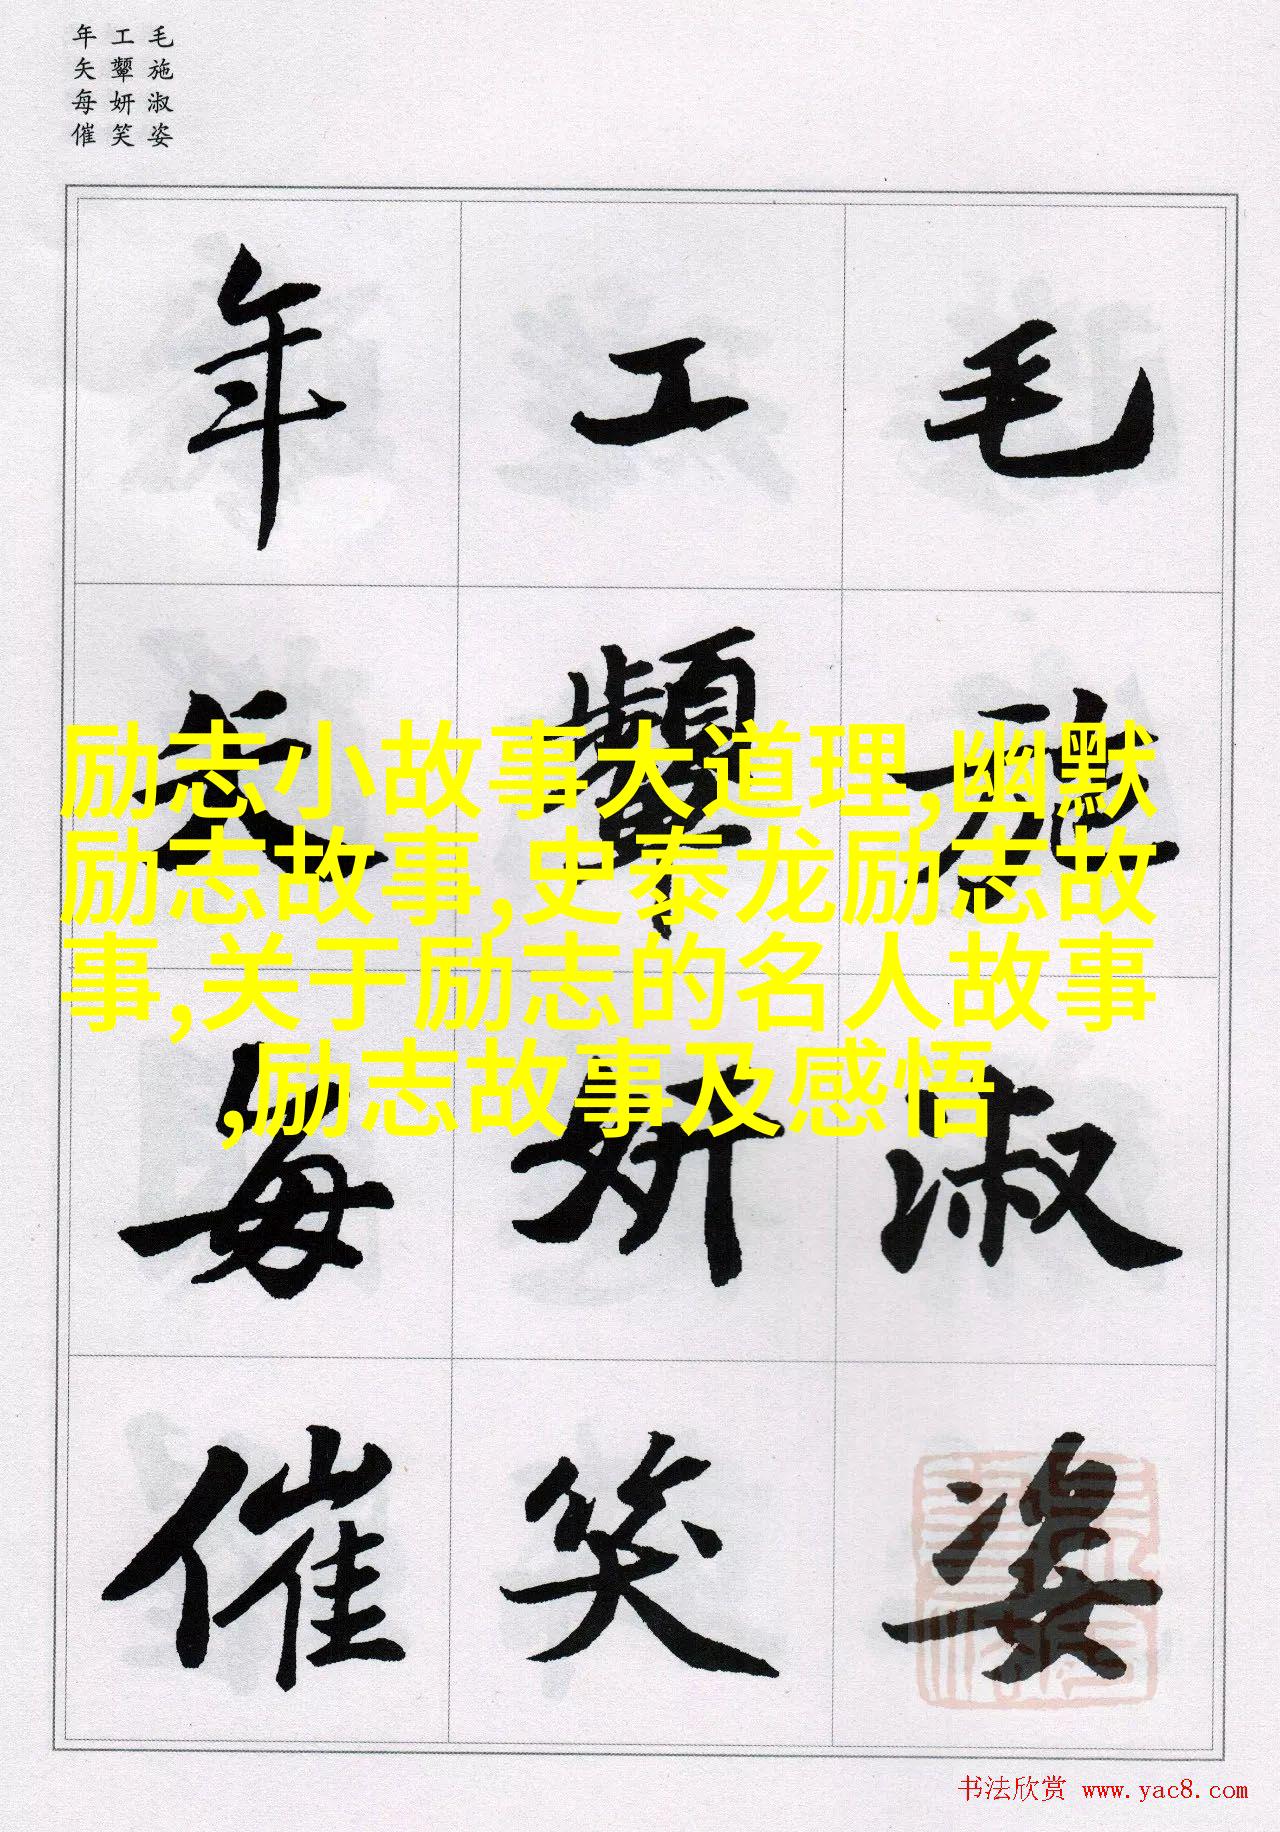 毛施淑姿
工颦妍笑
年矢每催
毛施淑姿
工颦妍笑
年矢每催
励志小故事大道理,幽默
励志故事,史泰龙励志故
事,关于励志的名人故事
,励志故事及感悟
书法欣赏 www.yac8.com